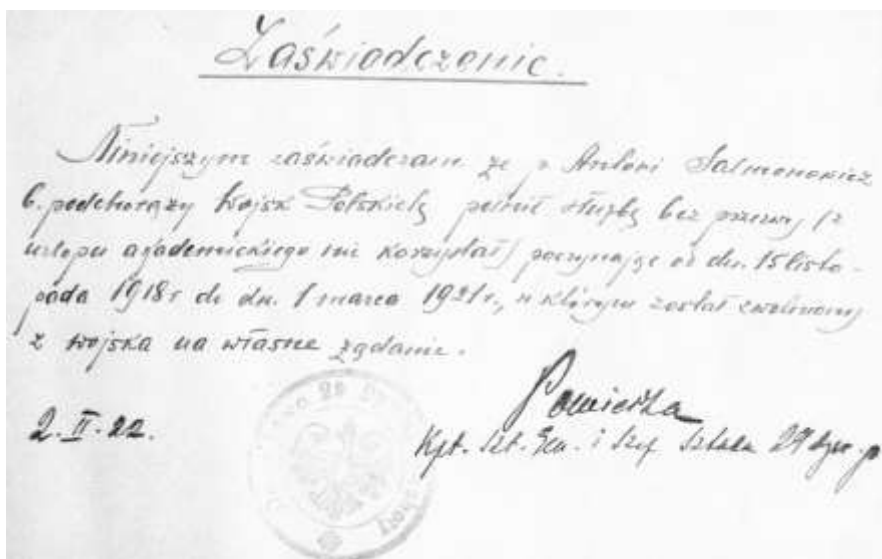 Zaświadczenie.
Niniejszym zaświadczam że p. Antoni Salmonowicz
b. podchorąży Wojsk Polskich pełnił służbę bez przerwy (z
urlopu akademickiego nie korzystał) poczynając od dn. 15 listo-
pada 1918 r do dn. 1 marca 1921 r., w którym został zwolniony
z wojska na własne żądanie.
2. II. 22.
Kpt. Szt. Gen. i Szef Sztabu 29 dyw. p